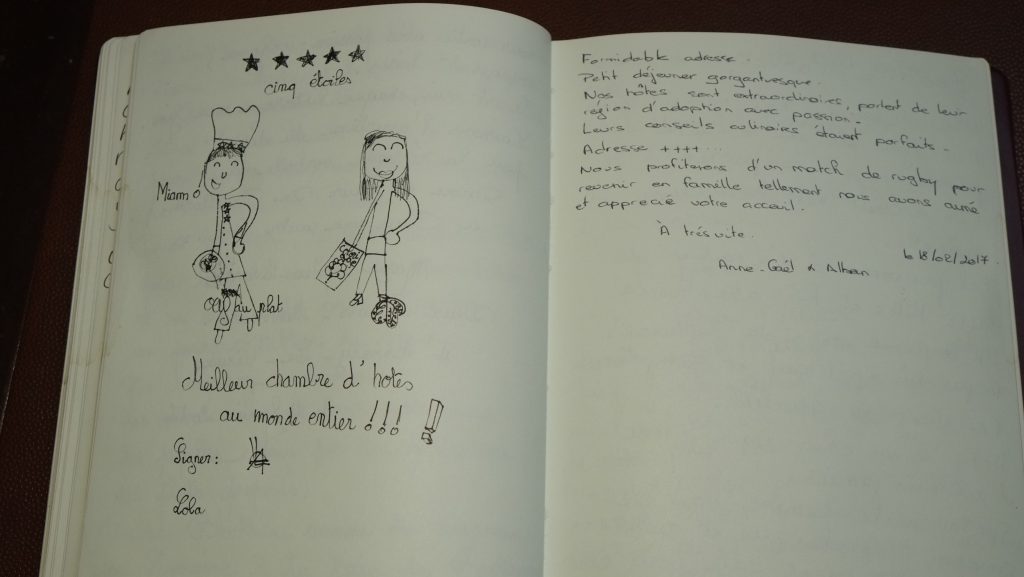 cinq étoiles
Miam
œuf au plat
Meilleur chambre d'hotes
au monde entier !!! !
Signer :
Lola
Formidable adresse.
Petit déjeuner gargantuesque.
Nos hôtes sont extraordinaires, parlent de leur
région d'adoption avec passion.
Leurs conseils culinaires étaient parfaits.
Adresse ++++ ...
Nous profiterons d'un match de rugby pour
revenir en famille tellement nous avons aimé
et apprécié votre acceuil.
À très vite.
le 18/02/2017.
Anne-Gaël &